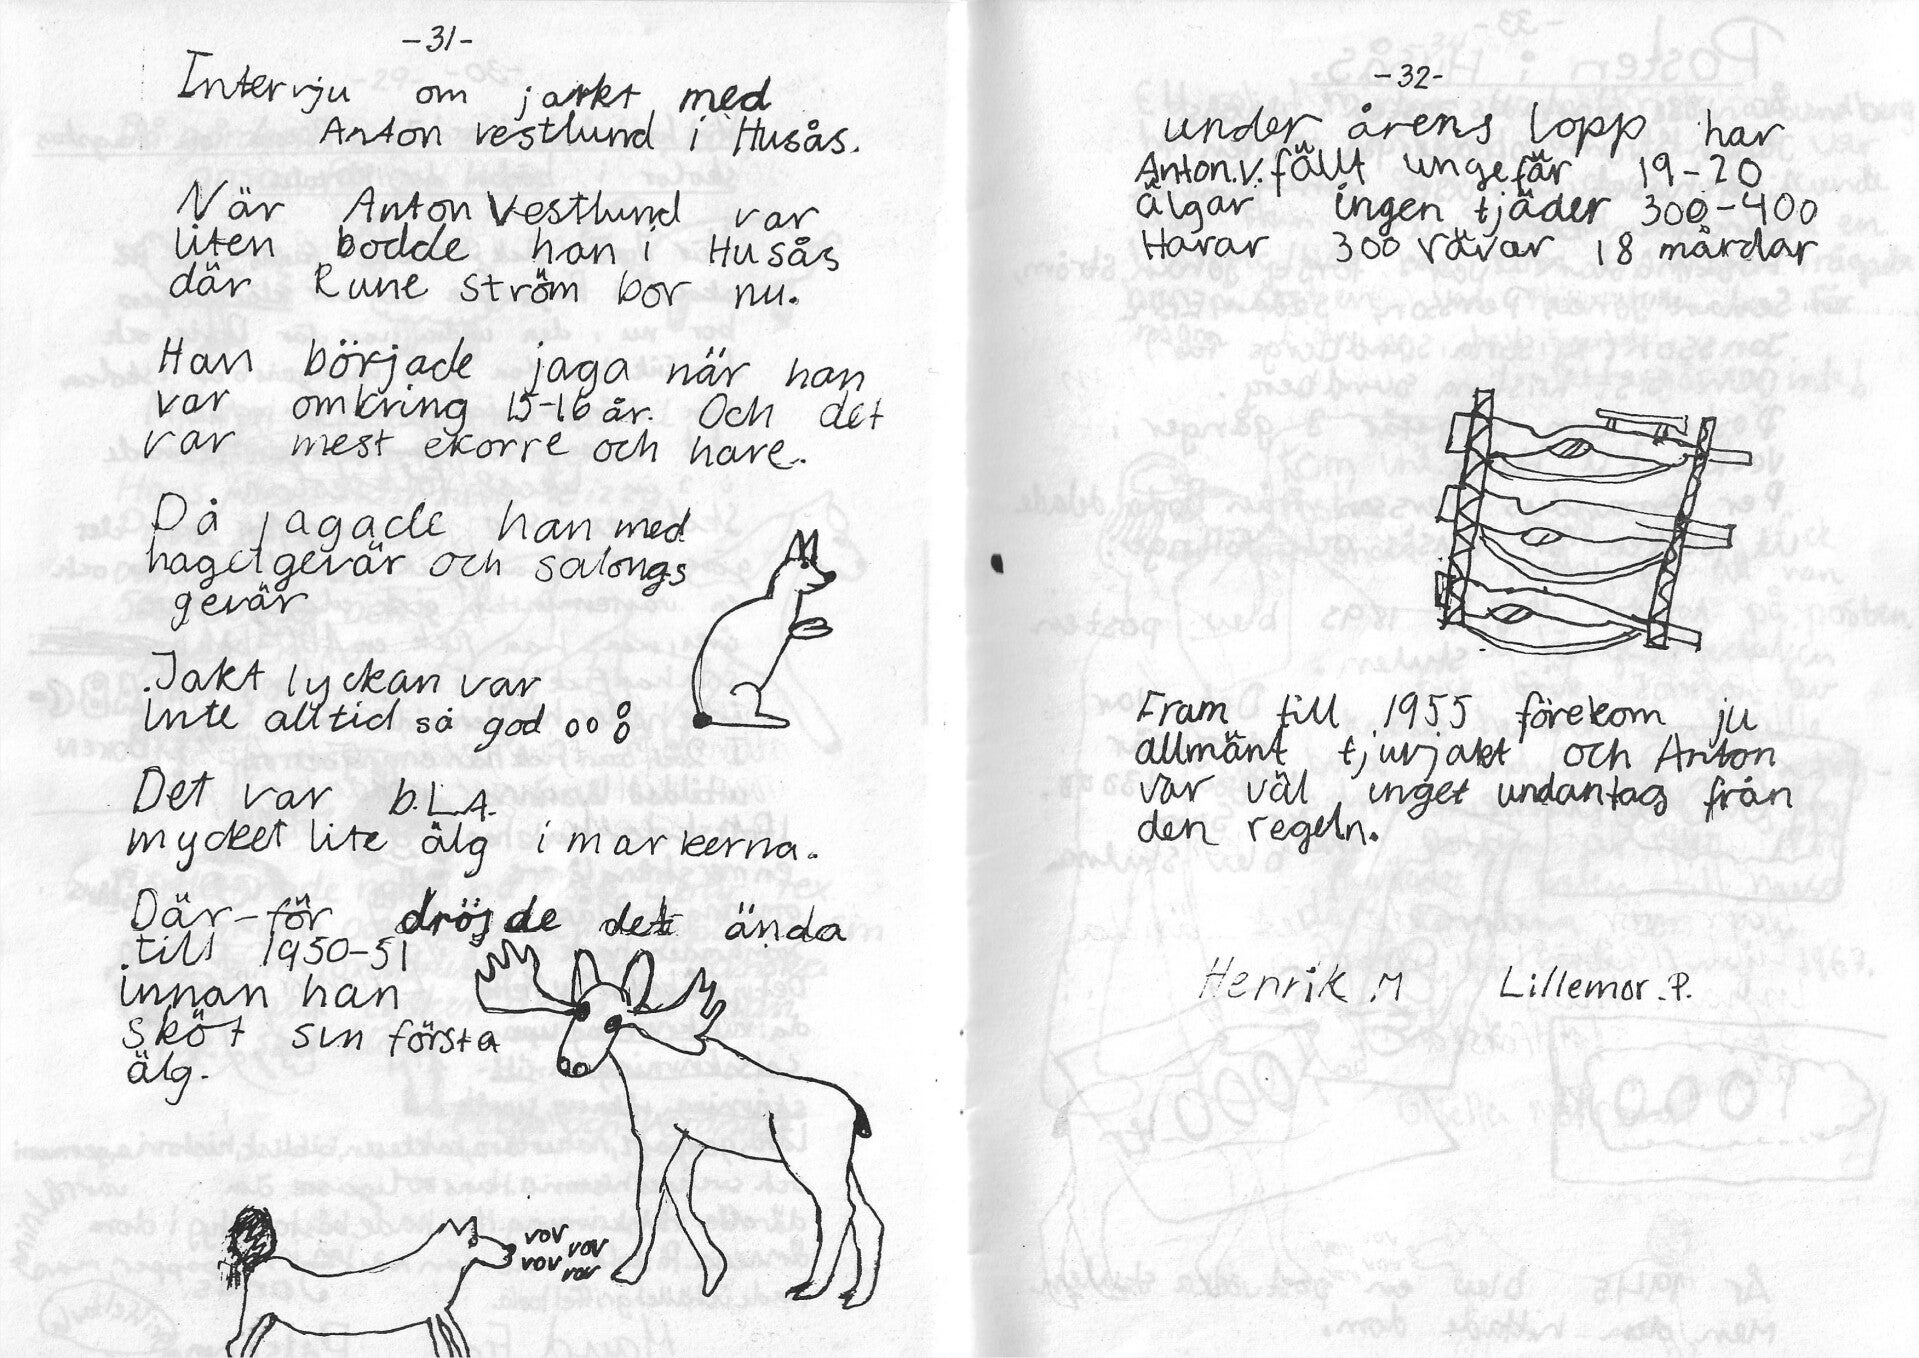 -31-
Intervju om jakt med
Anton Vestlund i Husås.
När Anton Vestlund var
liten bodde han i Husås
där Rune Ström bor nu.
Han började jaga när han
var omkring 15-16 år. Och det
var mest ekorre och hare.
Då jagade han med
hagelgevär och salongs
gevär
Jakt lyckan var
inte alltid så god
Det var b.L.A.
mycket lite älg i markerna.
Där-för dröjde det ända
till 1950-51
innan han
sköt sin första
älg.
vov
vov vov
vov
-32-
under årens lopp har
Anton.V. fällt ungefär 19-20
älgar ingen tjäder 300-400
Harar 300 rävar 18 mårdar
Fram till 1955 förekom ju
allmänt tjuvjakt och Anton
var väl inget undantag från
den regeln.
Henrik M Lillemor.P.